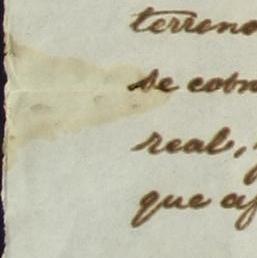 terreno
se cobr
real,
que